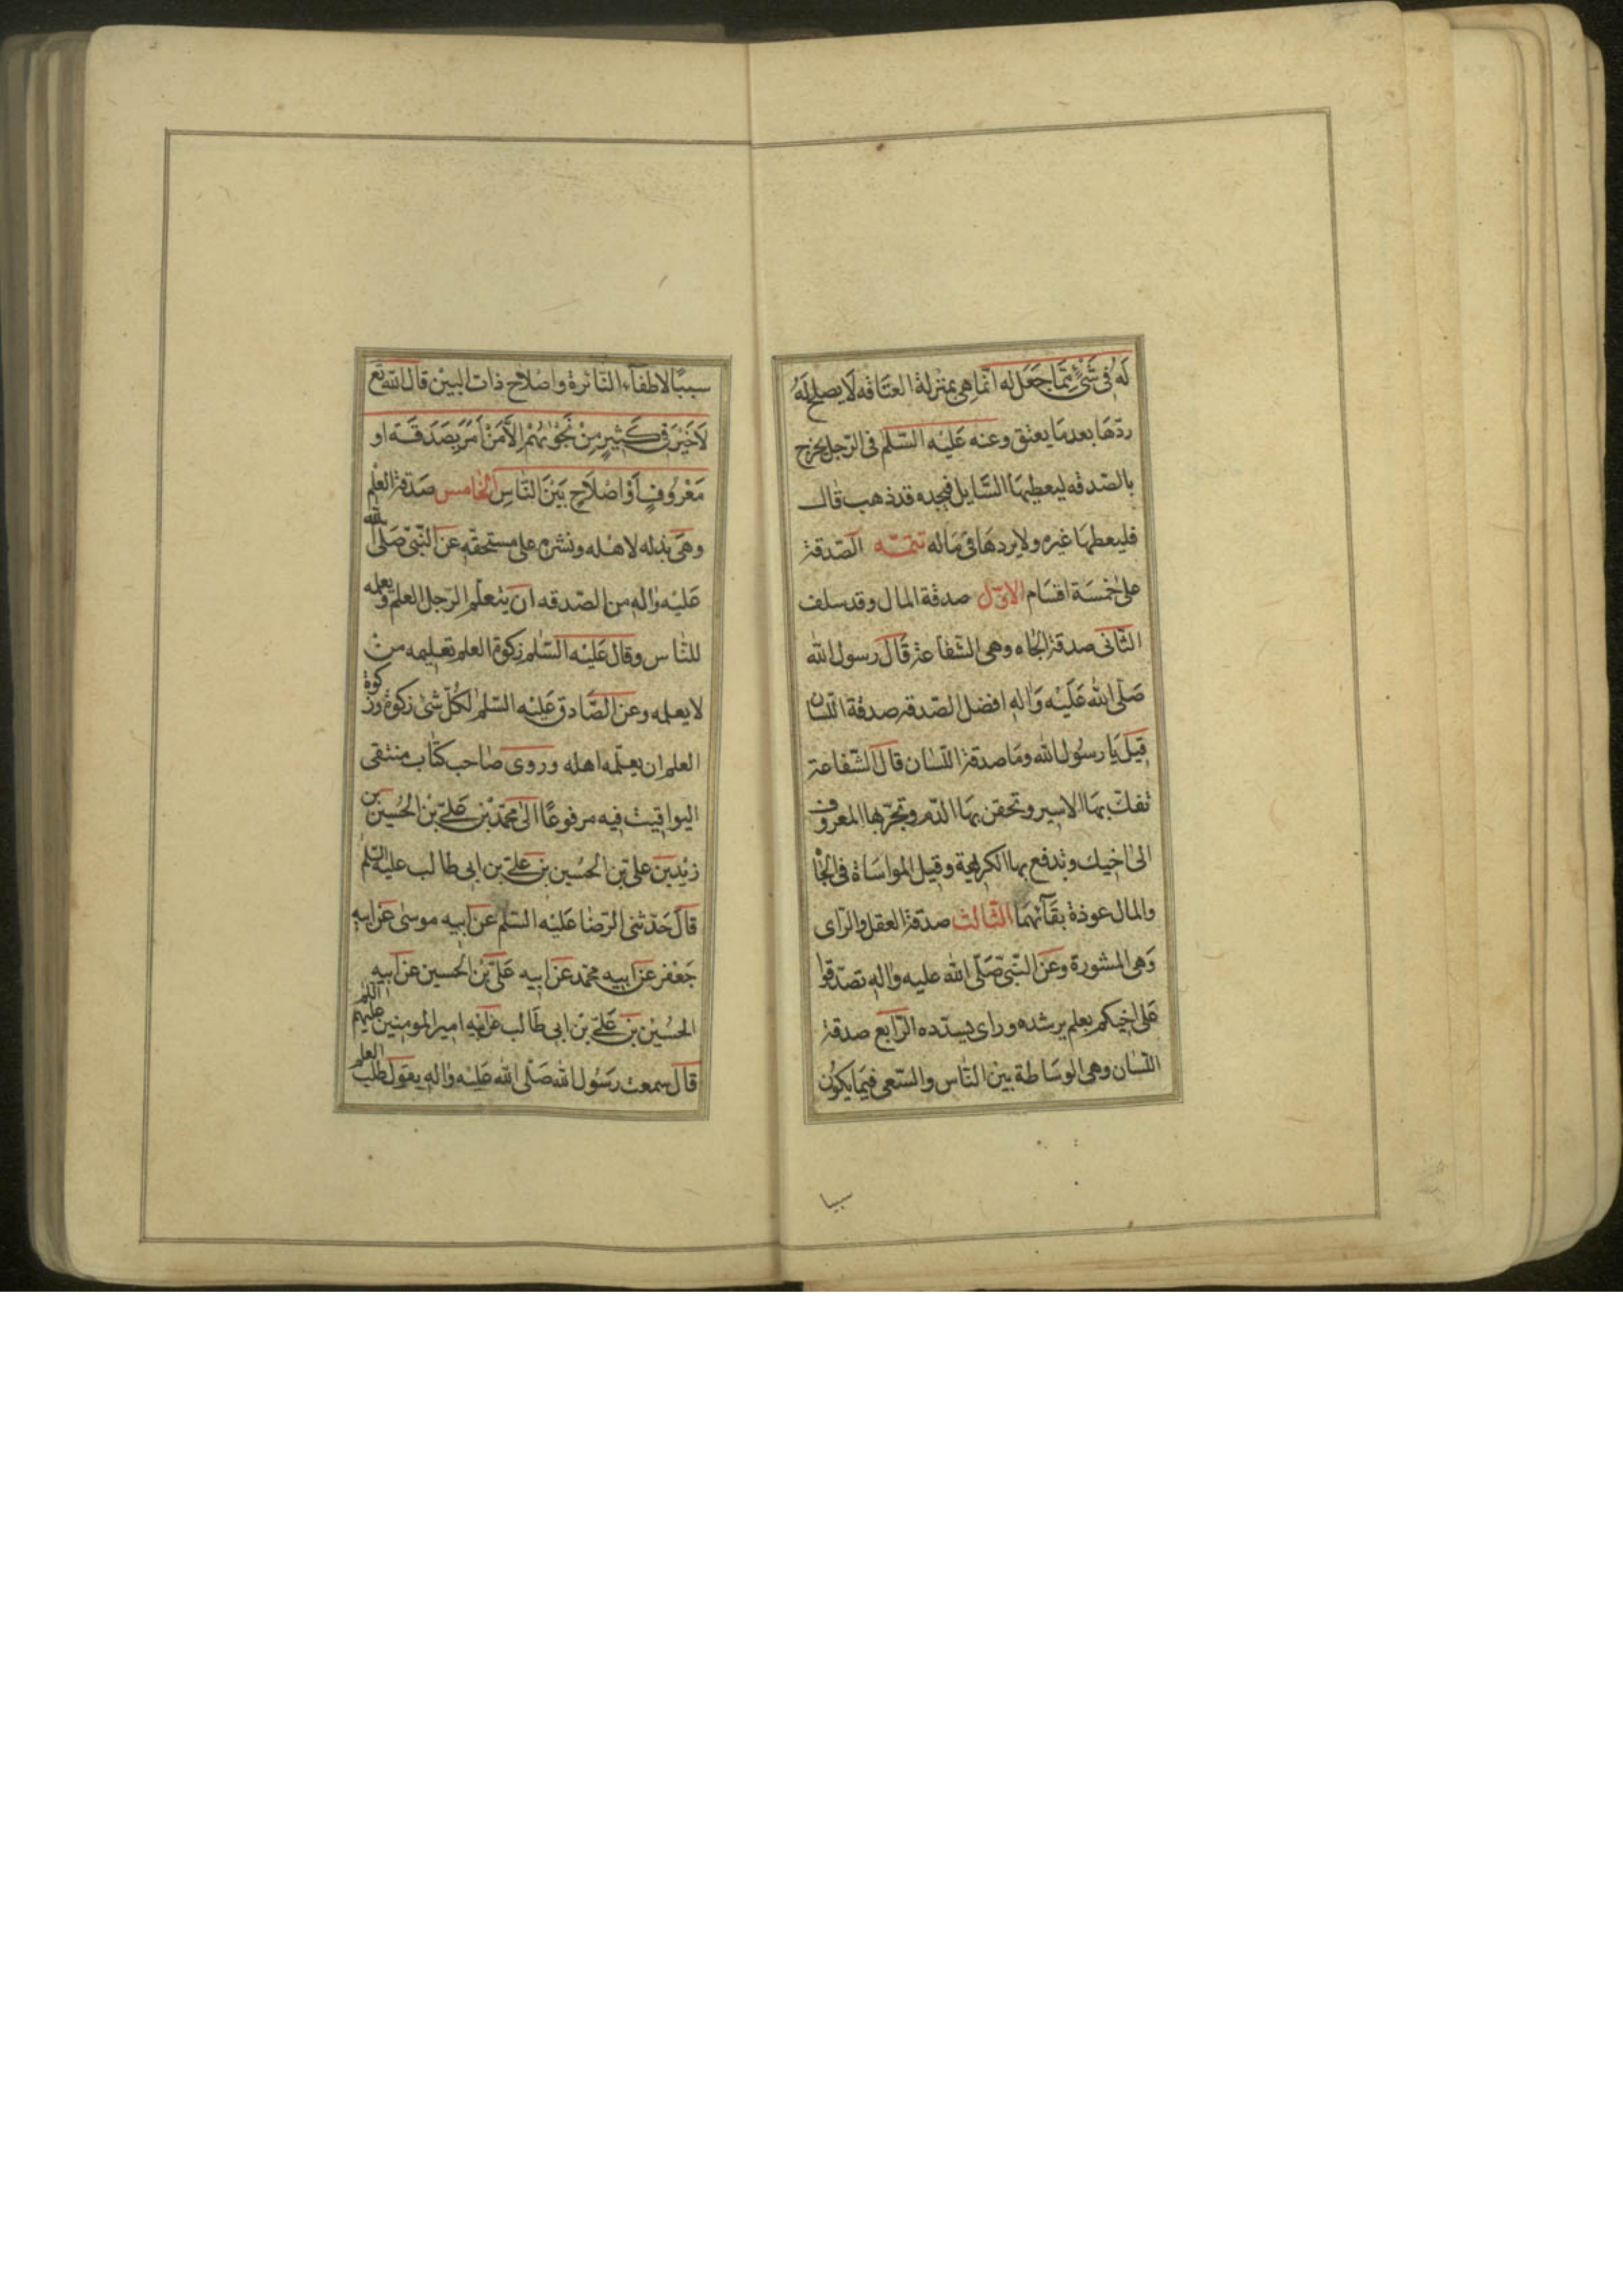 لَهُ فی شَیْءٍ مِمَّا جَعَلَ له انّما هی بمنزلة العتَاقه لَا یصلح لَهُ
ردّهَا بعد مَا یعتق وعنه عَلَیْه السّلم فی الرّجل یخرج
بالصّدقه لیعطیهَا السَّایل فیجده قد ذهب قال
فلیعطهَا غیره ولا یردهَا فی مَاله تتمّه الصّدقة
علی خمْسَة اقسَام الاوّل صدقة المال وقد سلف
الثّانی صدقة الجَاه وهی الشّفاعة قَالَ رسول الله
صَلّی الله عَلَیْه وَاله افضل الصّدقه صدقة اللّسان
قیلَ یَا رسُول الله ومَا صدقة اللّسَان قالَ الشّفاعة
تفكّ بهَا الاسیر وتحقن بهَا الدّم وتجرّ بها المعروف
الی اخیك وتدفع بها الكریهة وقیل المواسَاة فی الجَا
والمال عوذة بقَآئهمَا الثّالث صدقة العقل والرّای
وَهی المشورة وعَن النّبیّ صَلّی الله علیه واله تصدّقوا
عَلی اخیكم بعلم یرشده ورای یسدّده الرّابع صدقة
اللّسَان وهی الوسَاطة بین النّاس والسّعی فیمَا یكوُن
سببا
سببًا لاطفآء النّائرة واصْلاح ذات البیْن قال الله تَعَ
لَاخَیْرَ فی كَثیرٍ مِنْ نَجْویٰهُمْ اِلاَّ مَنْ اَمَرَ بِصَدَقَة او
مَعْرُوفٍ اَوْ اصْلَاحٍ بَیْنَ النَّاسِ الخامس صَدَقة العْلِم
وهیَ بذله لاهله ونشره علی مستحقّه عن النّبیّ صَلّی الله
عَلیْه وَاله من الصّدقه ان یتعلّم الرّجل العلم ویعلمه
للنّاس وقال عَلَیْه السَّلم زكوة العلم تعلیمه من
لا یعلمه وعن الصَّادق عَلَیْه السّلم لكُلّ شیْ زكوة وزكوة
العلم ان یعلّمه اهله وروی صَاحب كتٰاب منتقی
الیواقیت فیه مرفوعًا الیٰ محمّد بْن عَلیّ بْن الحُسیْن بن
زیْد بن علیّ بن الحسُین بن علیّ بن ابی طالب علیه السّلم
قالَ حَدّثنی الرّضَا عَلیْه السّلم عن ابیه موسیٰ عَن ابیه
جَعْفر عن ابیه محمّد عن ابیه عَلیّ بْن الحسین عن ابیه
الحسُیْن بن عَلیّ بن ابی طَالب عن ابیه امیر المومنین علیهم السّلم
قالَ سمعت رسُول الله صَلّی الله عَلیْه وَاله یقول طلب العلم